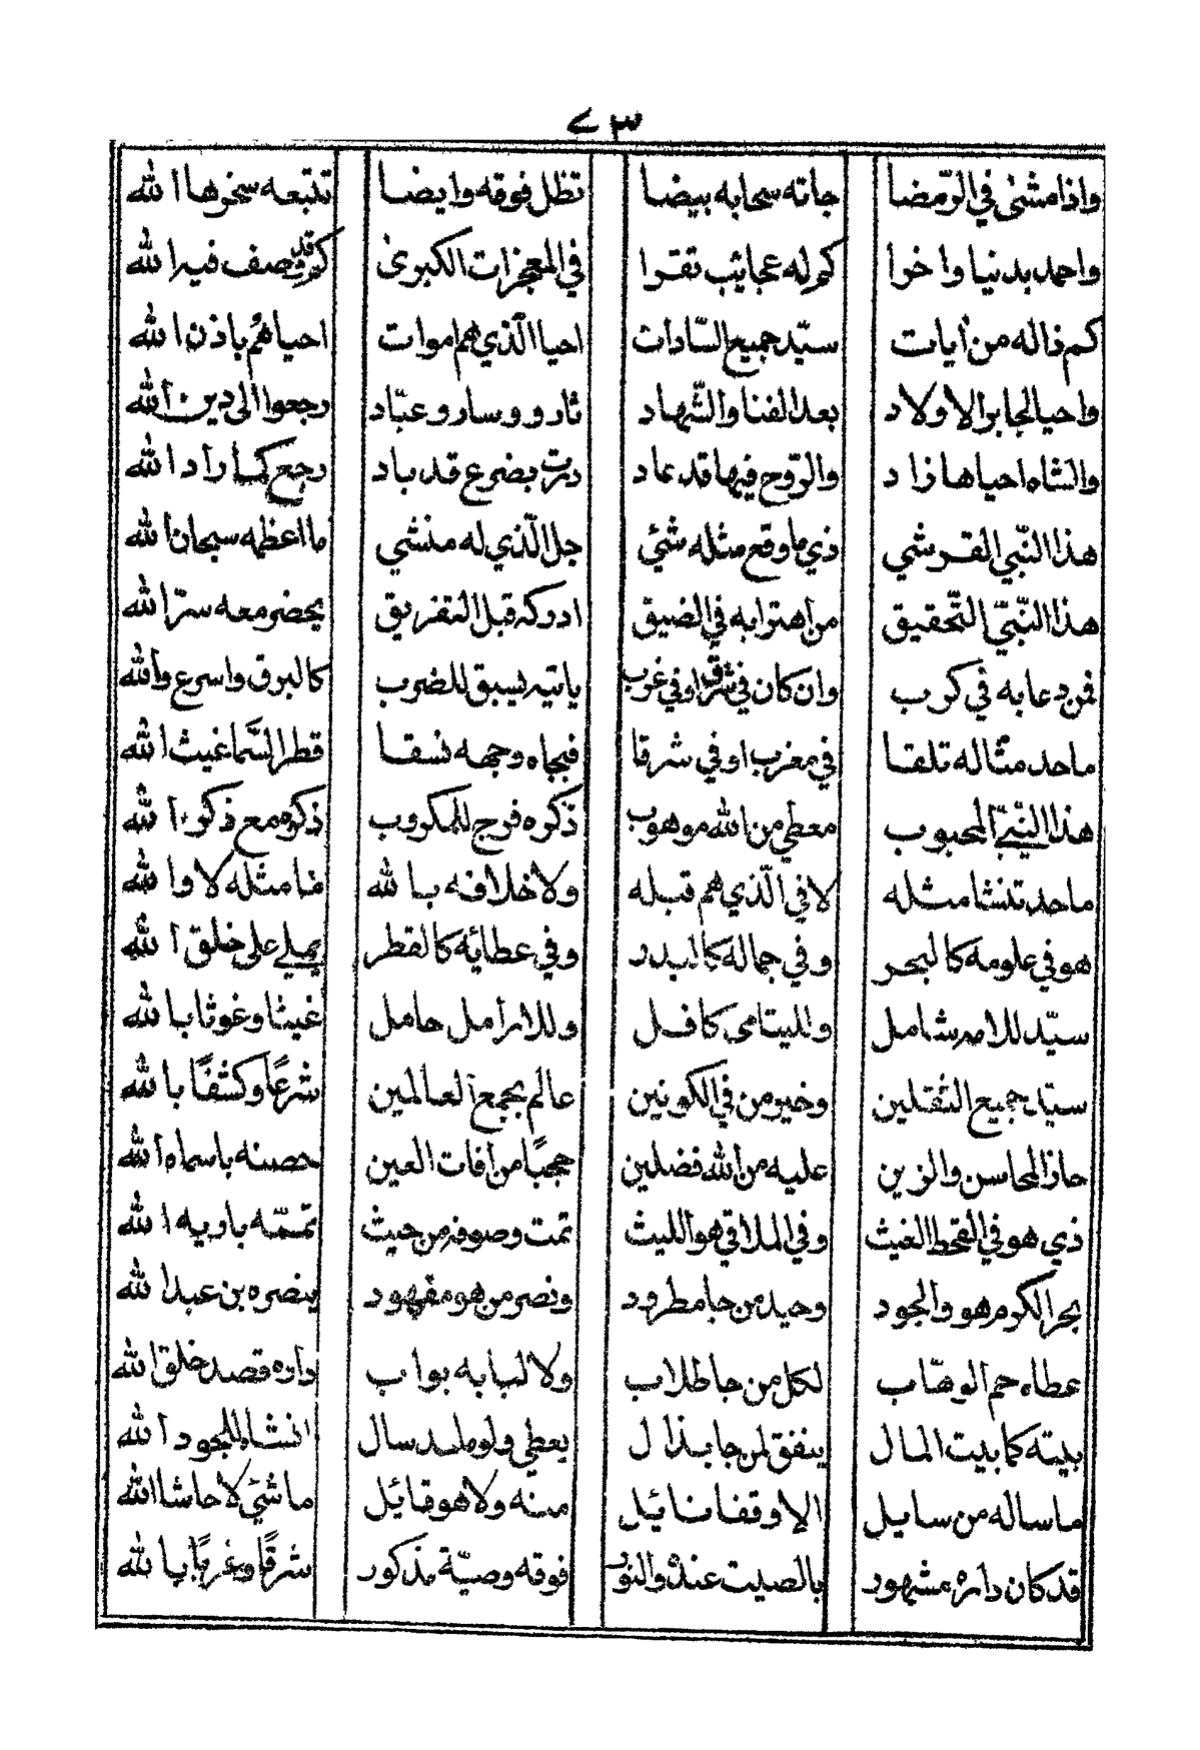 ٧٣
واذا مشى في الرّمضا جاته سحابه بيضا تظل فوقه وايضا تتبعه سخرها الله
واحمد بدنيا واخرا كم له عجائب تقرا في المعجزات الكبرى كم قد وصف فيه الله
كم ذاله من أيات سيّد جميع السّادات احيا الّذي هم اموات احياهُم باذن الله
واحيا لجابر الاولاد بعد الفنا والشّهاد ثارو وسارو عبّاد رجعوا الى دين الله
والشاه احياها زاد والرّوح فيها قد عاد درت بضرع قد باد رجع كما راد الله
هذا النّبي القرشي ذي ما وقع مثله شئ جل الّذي له منشي ما اعظمه سبحان الله
هذا النّبيّ التّحقيق من اهترابه في الضيق ادركه قبل التفريق يحضر معه سرّ الله
فمن دعا به في كرب وان كان في شرق او في غرب ياتيه يسبق للضرب كالبرق واسرع والله
ماحد مثاله تلقا في مغرب او في شرقا فبجاه وجهه نسقا قطر السّما غيث الله
هذا النّبيّ المحبوب معطي من الله موهوب ذكره فرج للمكروب ذكره مع ذكر الله
ماحد تنشا مثله لا في الّذي هم قبله ولا خلافه بالله فما مثله لا والله
هو في علومه كالبحر وفي جماله كالبدر وفي عطائه كالقطر يملي على خلق الله
سيّد للامر شامل ولليتامى كافل وللارامل حامل غيثا وغوثا بالله
سيّد جميع الثقلين وخير من في الكونين عالم بجمع العالمين شرعًا وكشفًا بالله
حاز المحاسن والزين عليه من الله فضلين حجبًا من افات العين حصنه باسماه الله
ذي هو في القحط الغيث وفي الملاقي هو الليث تمت وصوفه من حيث تممّه باريه الله
بحر الكرم هو والجود وحيد من جا مطرود ونصر من هو مقهود ينصره بن عبد الله
عطاه حم الوهّاب لكل من جا طلاب ولا لبابه بواب داره قصد خلق الله
بيته كما بيت المال ينفق لمن جا بذال يعطي ولو ملد سال انشاه للجود الله
ما ساله من سايل الا وقفا نائل منه ولا هو قائل ما شئ لا حاشا الله
قد كان داره مشهود بالصيت عنده والنور فوقه وصيّة مذكور شرقًا وغربًا يالله